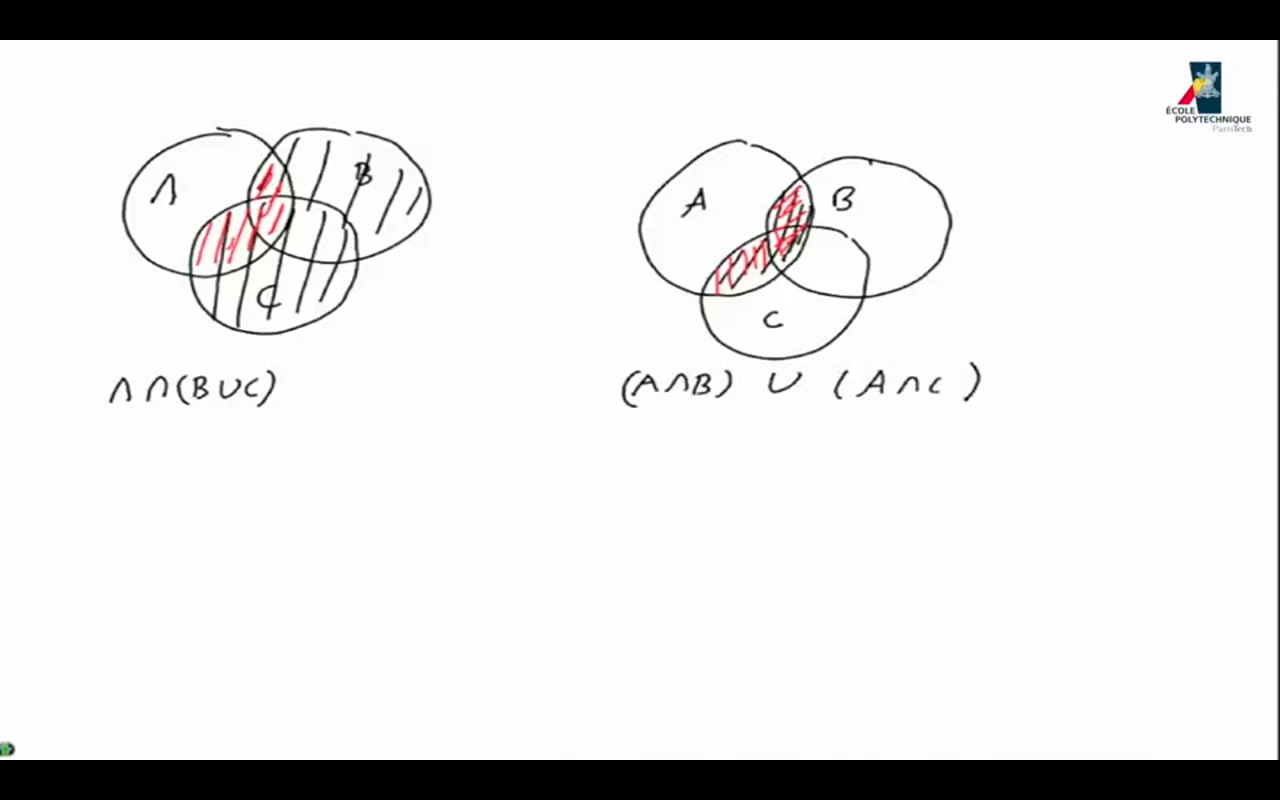 ÉCOLE
POLYTECHNIQUE
ParisTech
A
B
C
A
B
C
A ∩ (B ∪ C)
(A ∩ B) ∪ (A ∩ C)